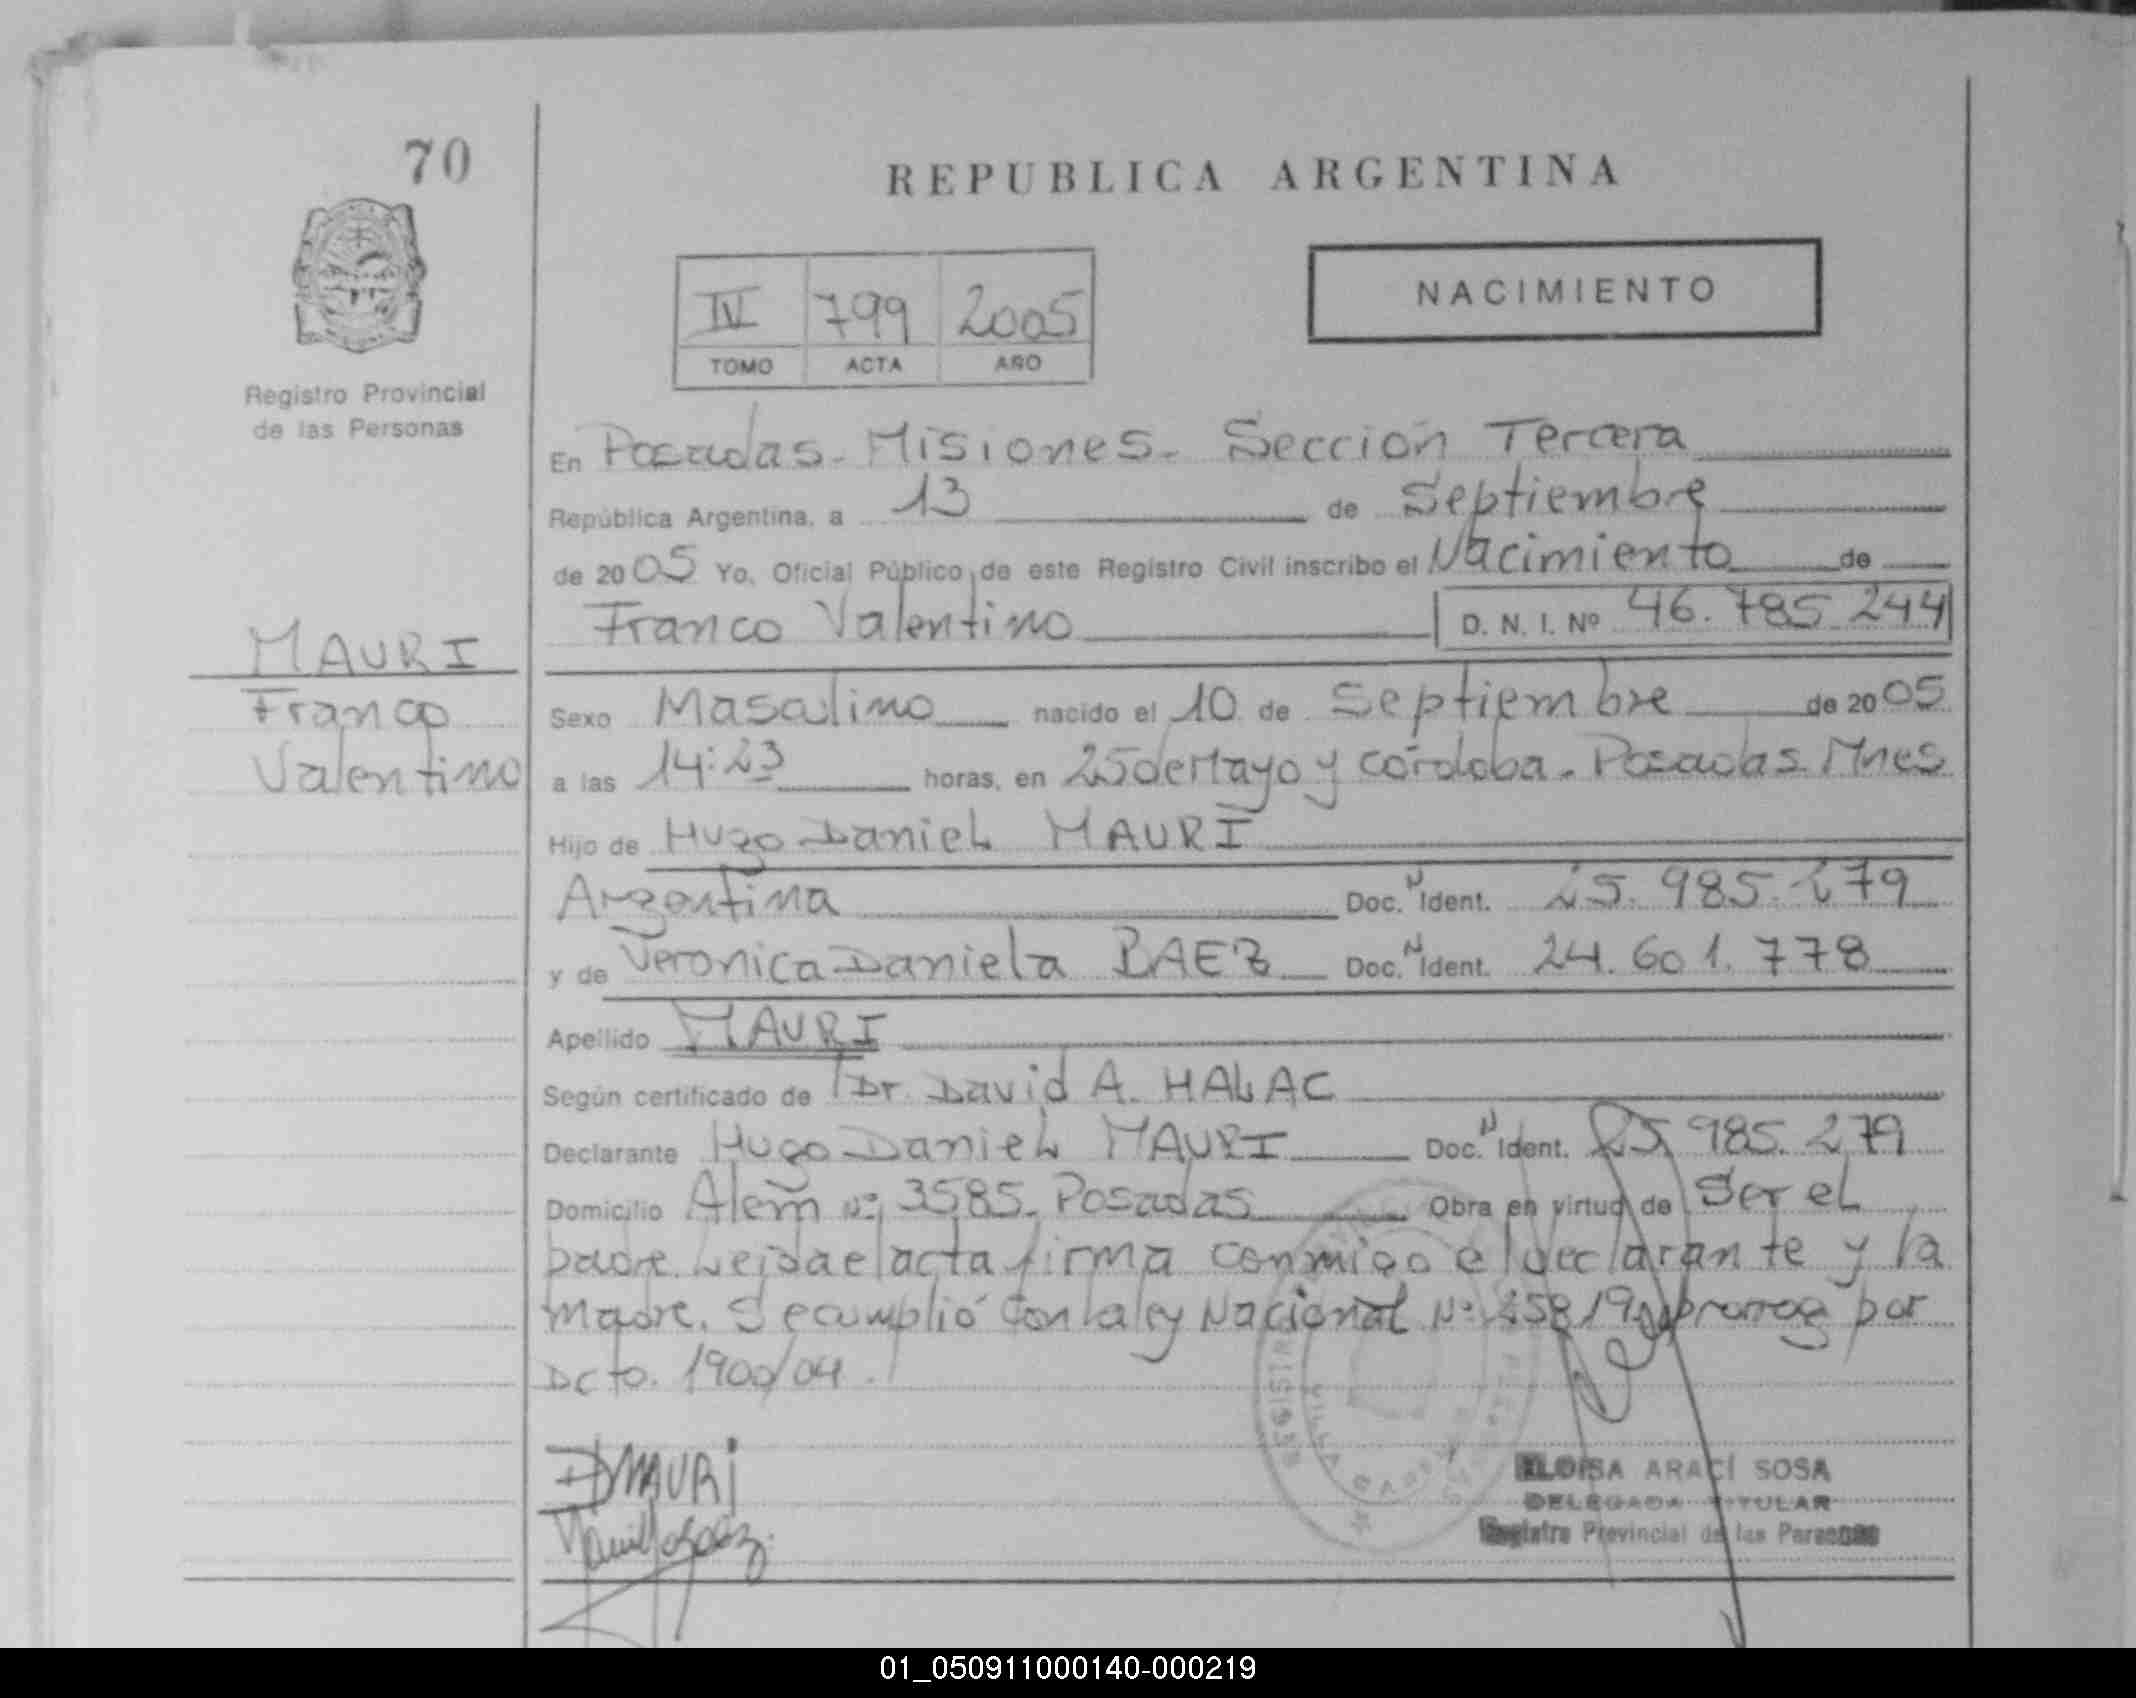 70
REPUBLICA ARGENTINA
IV 799 2005
TOMO ACTA AÑO
NACIMIENTO
Registro Provincial
de las Personas
En Posadas - Misiones - Sección Tercera
República Argentina, a 13 de Septiembre
de 2005 Yo, Oficial Público de este Registro Civil inscribo el Nacimiento de
Franco Valentino D. N. I. Nº 46.785.244
MAURI
Franco
Valentino
Sexo Masculino nacido el 10 de Septiembre de 2005
a las 14:23 horas, en 25 de Mayo y córdoba. Posadas Mnes
Hijo de Hugo Daniel MAURI
Argentina Doc. N Ident. 25.985.279
y de Veronica Daniela BAEZ Doc. N Ident. 24.601.778
Apellido MAURI
Según certificado de Dr. David A. HALAC
Declarante Hugo Daniel MAURI Doc. N Ident. 25.985.279
Domicilio Alem Nº 3585. Posadas Obra en virtud de Ser el
padre. Leida el acta firma conmigo el declarante y la
Madre. Se cumplió con la ley Nacional Nº 25819 prorrog por
Dcto. 1900/04.
D MAURi
ELOISA ARACÍ SOSA
DELEGADA TITULAR
Registro Provincial de las Personas
01_050911000140-000219